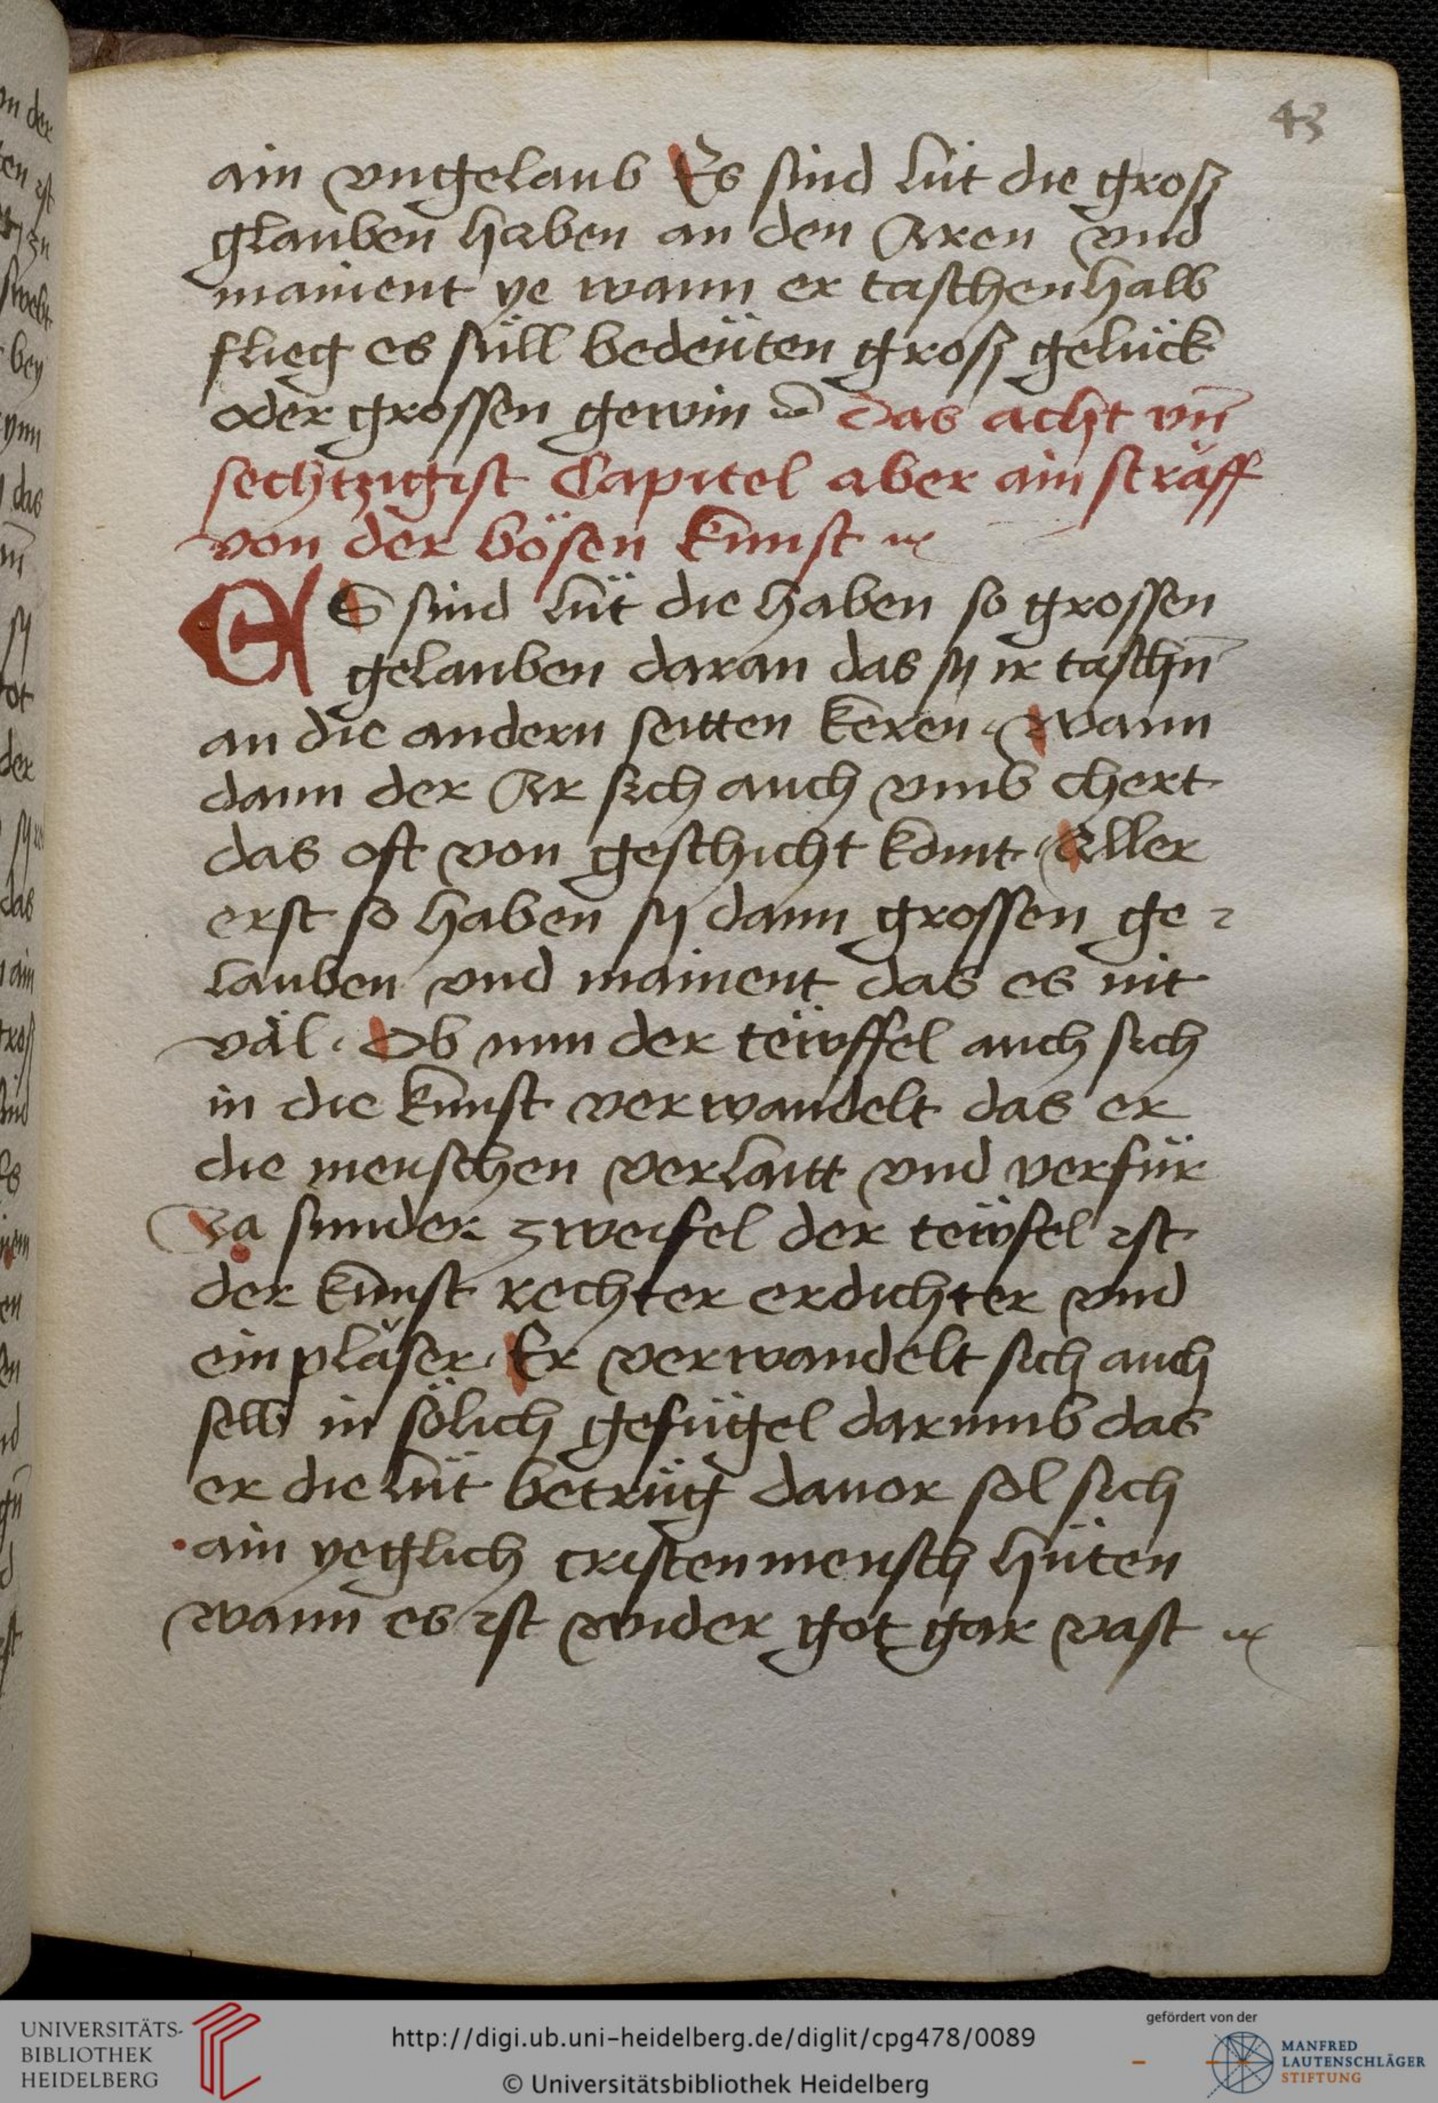 43
ain vngelaub Es sind lüt die grosz
glauben haben an den Aren vnd
mainent ye wann er taschenhalb
flieg es süll bedeüten grosz gelück
oder grossen gewin das acht vn̄
sechtzigist Capitel aber ain sträff
von der bösen kunst
ES sind lüt die haben so grossen
gelauben daran das sy ir taschn̄
an die andern seitten keren. wann
dann der Ar sich auch vmb chert
das oft von geschicht komt. Aller
erst so haben sy dann grossen ge-
lauben vnd mainent das es nit
väl. Ob nun der teüffel auch sich
in die kunst verwandelt das er
die menschen verlaitt vnd verfür
Ja sunder zweifel der teüfel ist
der kunst rechter erdichter vnd
ein pläser. Er verwandelt sich auch
selb in sölich gefügel darumb das
er die lüt betrüg dauor sol sich
ain yeglich cristenmensch hüten
wann es ist wider got gar vast
UNIVERSITÄTS-
BIBLIOTHEK
HEIDELBERG
http://digi.ub.uni-heidelberg.de/diglit/cpg478/0089
© Universitätsbibliothek Heidelberg
gefördert von der
MANFRED
LAUTENSCHLÄGER
STIFTUNG